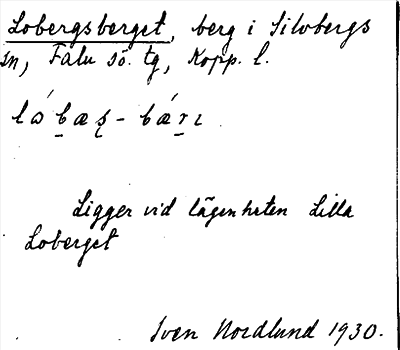 Lobergsberget, berg i Silvbergs
sn, Falu sö. tg, Kopp. l.
lóbæʂ-bǽrɩ
Ligger vid lägenheten Lilla
Loberget
Sven Nordlund 1930.